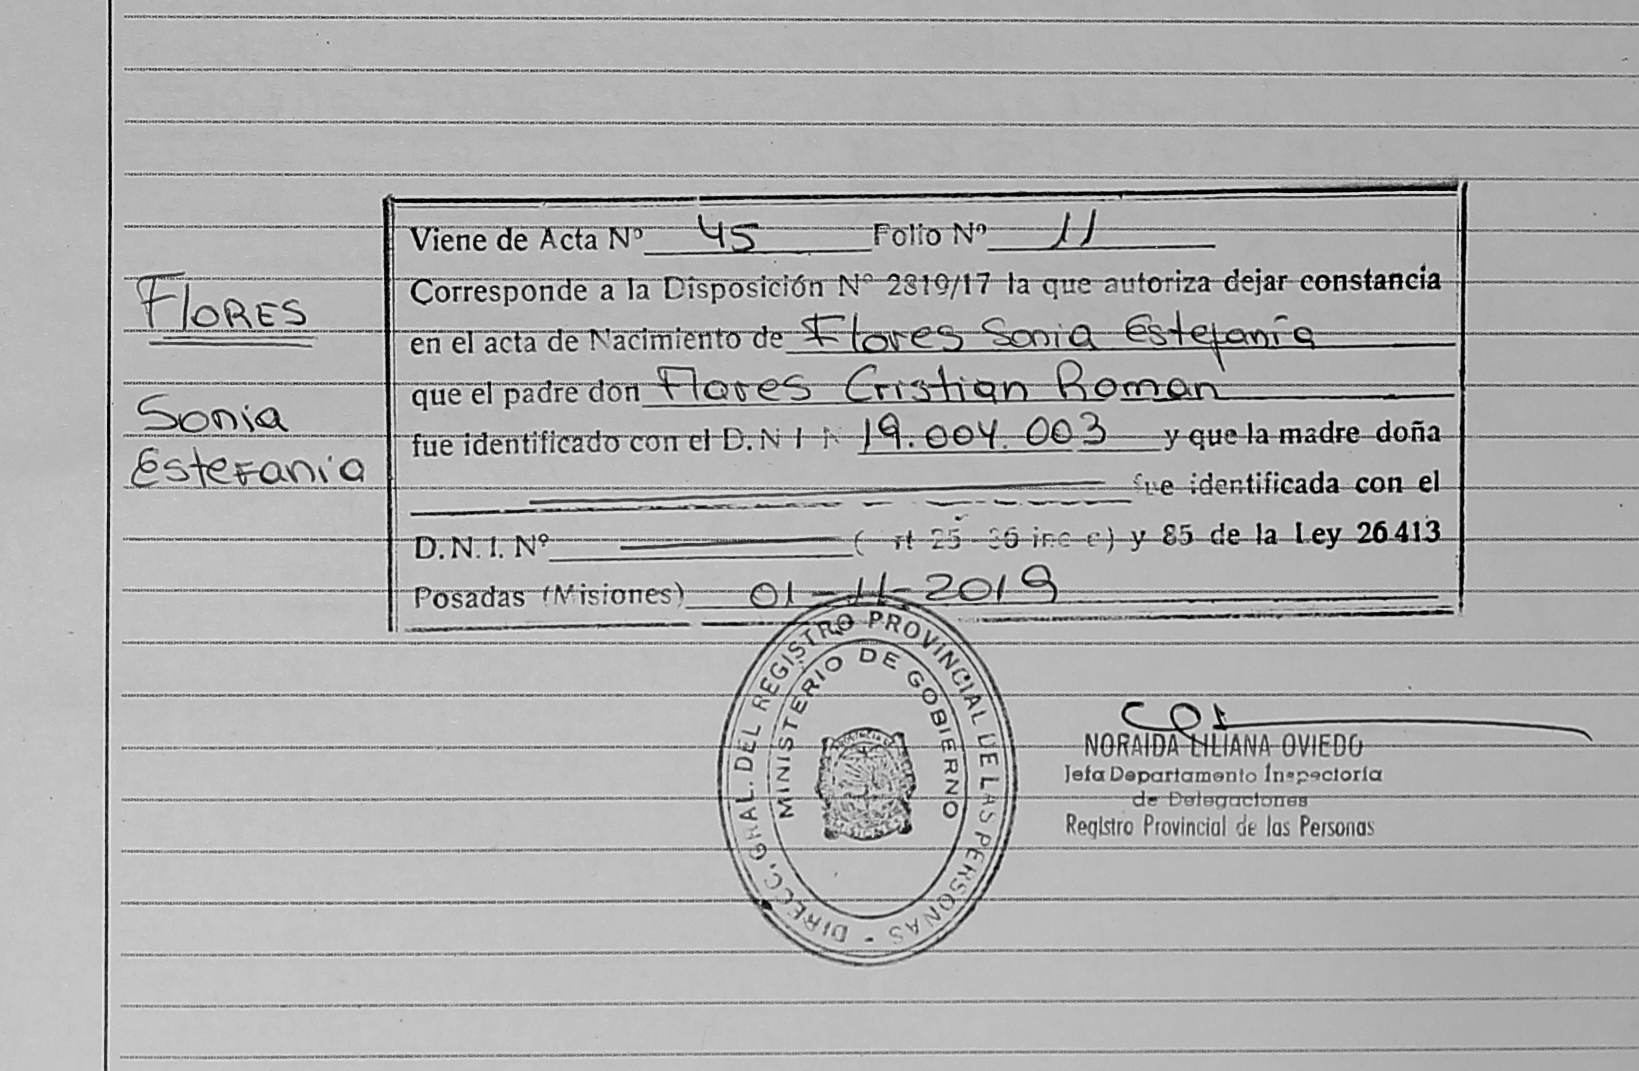 Viene de Acta Nº 45 Folio Nº 11
FLORES
Corresponde a la Disposición Nº 2819/17 la que autoriza dejar constancia
en el acta de Nacimiento de Flores Sonia Estefanía
que el padre don Flores Cristian Roman
Sonia
Estefania
fue identificado con el D.N.I N 19.004.003 y que la madre doña
fue identificada con el
D.N.I. Nº ( rt 25 36 inc c) y 85 de la Ley 26413
Posadas (Misiones) 01-11-2019
DIRECC. GRAL. DEL REGISTRO PROVINCIAL DE LAS PERSONAS -
MINISTERIO DE GOBIERNO
NORAIDA LILIANA OVIEDO
Jefa Departamento Inspectoría
de Delegaciones
Registro Provincial de las Personas